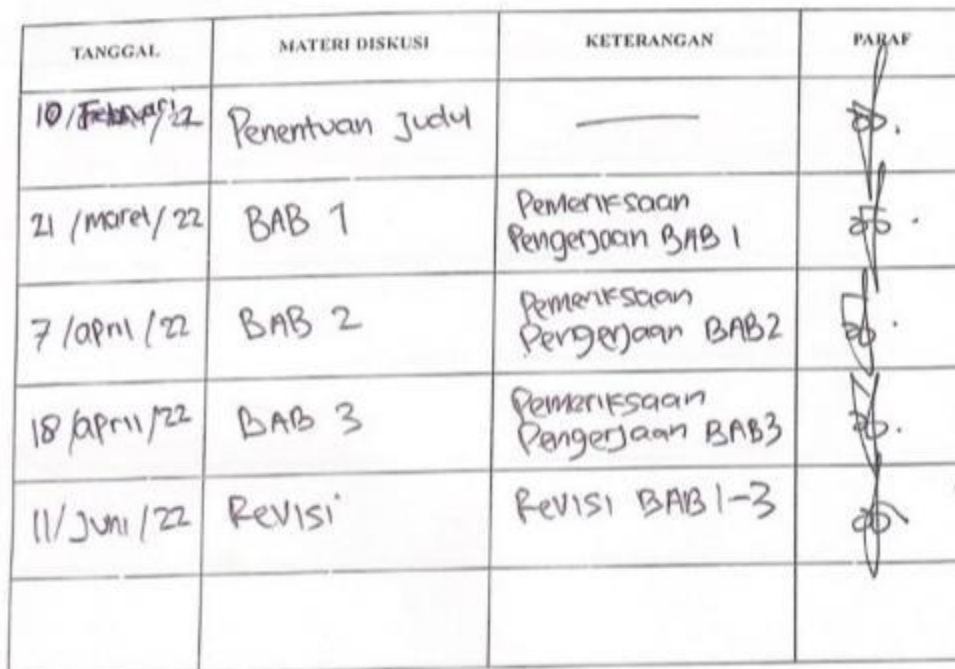 TANGGAL MATERI DISKUSI KETERANGAN PARAF
10/Februari/22 Penentuan Judul
21/maret/22 BAB 1 Pemeriksaan
Pengerjaan BAB 1
7/april/22 BAB 2 Pemeriksaan
Pengerjaan BAB2
18/april/22 BAB 3 Pemeriksaan
Pengerjaan BAB3
11/Juni/22 Revisi Revisi BAB 1-3